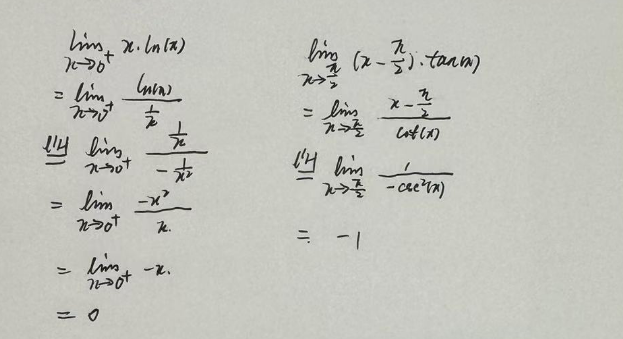 lim_{x→0⁺} x·ln(x)
= lim_{x→0⁺} ln(x) / (1/x)
L'H= lim_{x→0⁺} (1/x) / (-1/x²)
= lim_{x→0⁺} -x²/x
= lim_{x→0⁺} -x.
= 0
lim_{x→π/2} (x - π/2)·tan(x)
= lim_{x→π/2} (x - π/2) / cot(x)
L'H= lim_{x→π/2} 1 / (-csc²(x))
= -1